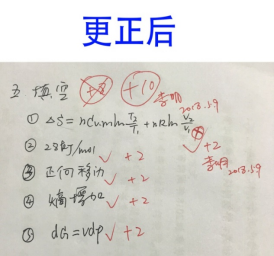 更正后
五 填空 +8 +10 李明 2018.5.9
① ΔS = nCv.m ln T2/T1 + nR ln V2/V1
+2
② 28kJ/mol +2 李明 2018.5.9
③ 正向移动 +2
④ 熵增加 +2
⑤ dG=vdp +2